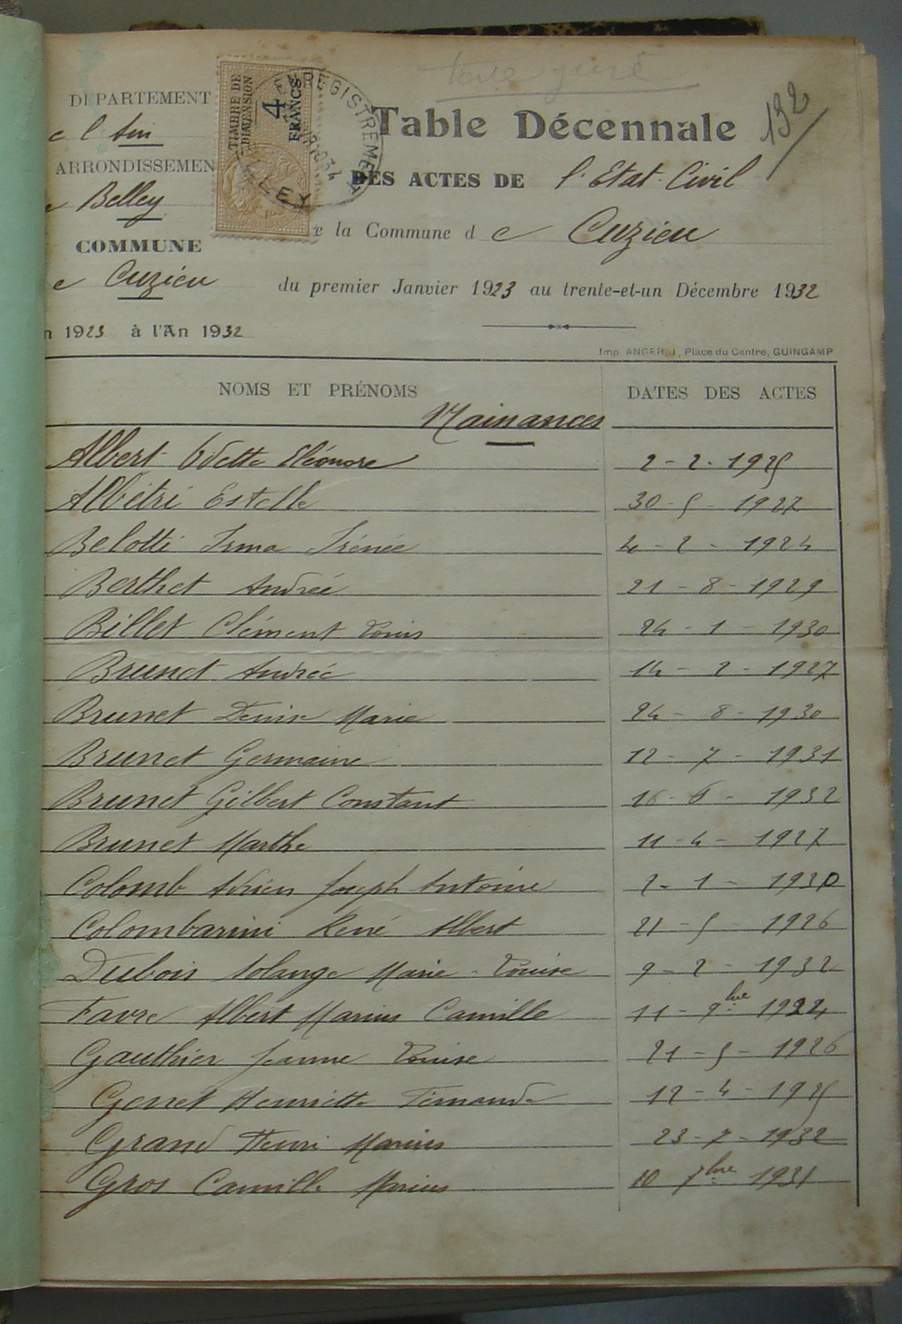 DEPARTEMENT
l'Ain
ARRONDISSEMEN
Belley
COMMUNE
Cuzieu
n 1923 à l'An 1932
TIMBRE DE
DIMENSION
4
FRANCS
ENREGISTREMENT
BELLEY
132
Table Décennale
DES ACTES DE l'Etat-Civil
e la Commune d e Cuzieu
du premier Janvier 1923 au trente-et-un Décembre 1932
Imp. ANGER, Place du Centre, GUINGAMP
NOMS ET PRÉNOMS DATES DES ACTES
Naissances
Albert Odette Eléonore 2-2-1925
Albétri Estelle 30-5-1927
Belotti Irma Irénée 4-2-1924
Berthet Andrée 21-8-1929
Billet Clément Louis 24-1-1930
Brunet Andrée 14-2-1927
Brunet Denise Marie 24-8-1930
Brunet Germaine 12-7-1931
Brunet Gilbert Constant 16-6-1932
Brunet Marthe 11-4-1927
Colomb Adrien Joseph Antoine 2-1-1930
Colombarini René Albert 21-5-1926
Dubois Solange Marie-Louise 9-2-1932
Favre Albert Marius Camille 11-9bre 1924
Gauthier Jeanne Louise 21-5-1926
Genet Henriette Fernande 12-4-1925
Grand Henri Marius 23-7-1932
Gros Camille Marius 10 7bre 1931